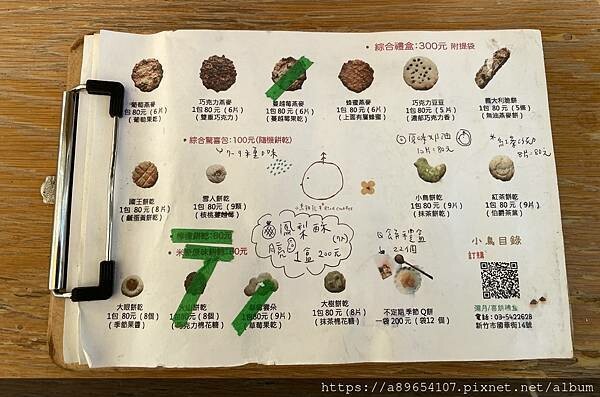 • 綜合禮盒:300元 附提袋
葡萄燕麥
1包 80元 (6片)
(葡萄果乾)
巧克力燕麥
1包 80元 (6片)
(雙重巧克力)
蔓越莓燕麥
1包 80元 (6片)
(蔓越莓果乾)
蜂蜜燕麥
1包 80元 (6片)
(上面有層蜂蜜)
巧克力豆豆
1包 80元 (5片)
(濃郁巧克力香)
義大利脆餅
1包 80元 (5條)
(無油燕麥餅)
• 綜合驚喜包:100元(隨機餅乾)
國王餅乾
1包 80元 (8片)
(鹹蛋黃餅乾)
雪人餅乾
1包 80元 (9顆)
小鳥餅乾
1包 80元 (9片)
(抹茶餅乾)
紅茶餅乾
1包 80元 (9片)
(伯爵茶葉)
鳳梨酥
1盒 200元
22個
小鳥目錄
訂購
大眼餅乾
1包 80元 (8個)
(季節果醬)
大樹餅乾
1包 80元 (8片)
(抹茶棉花糖)
不定期 季節Q餅
一袋 200元 (袋12個)
彌月/喜餅禮盒
電話:03-5422628
新竹市國華街14號
https://a89654107.pixnet.net/album